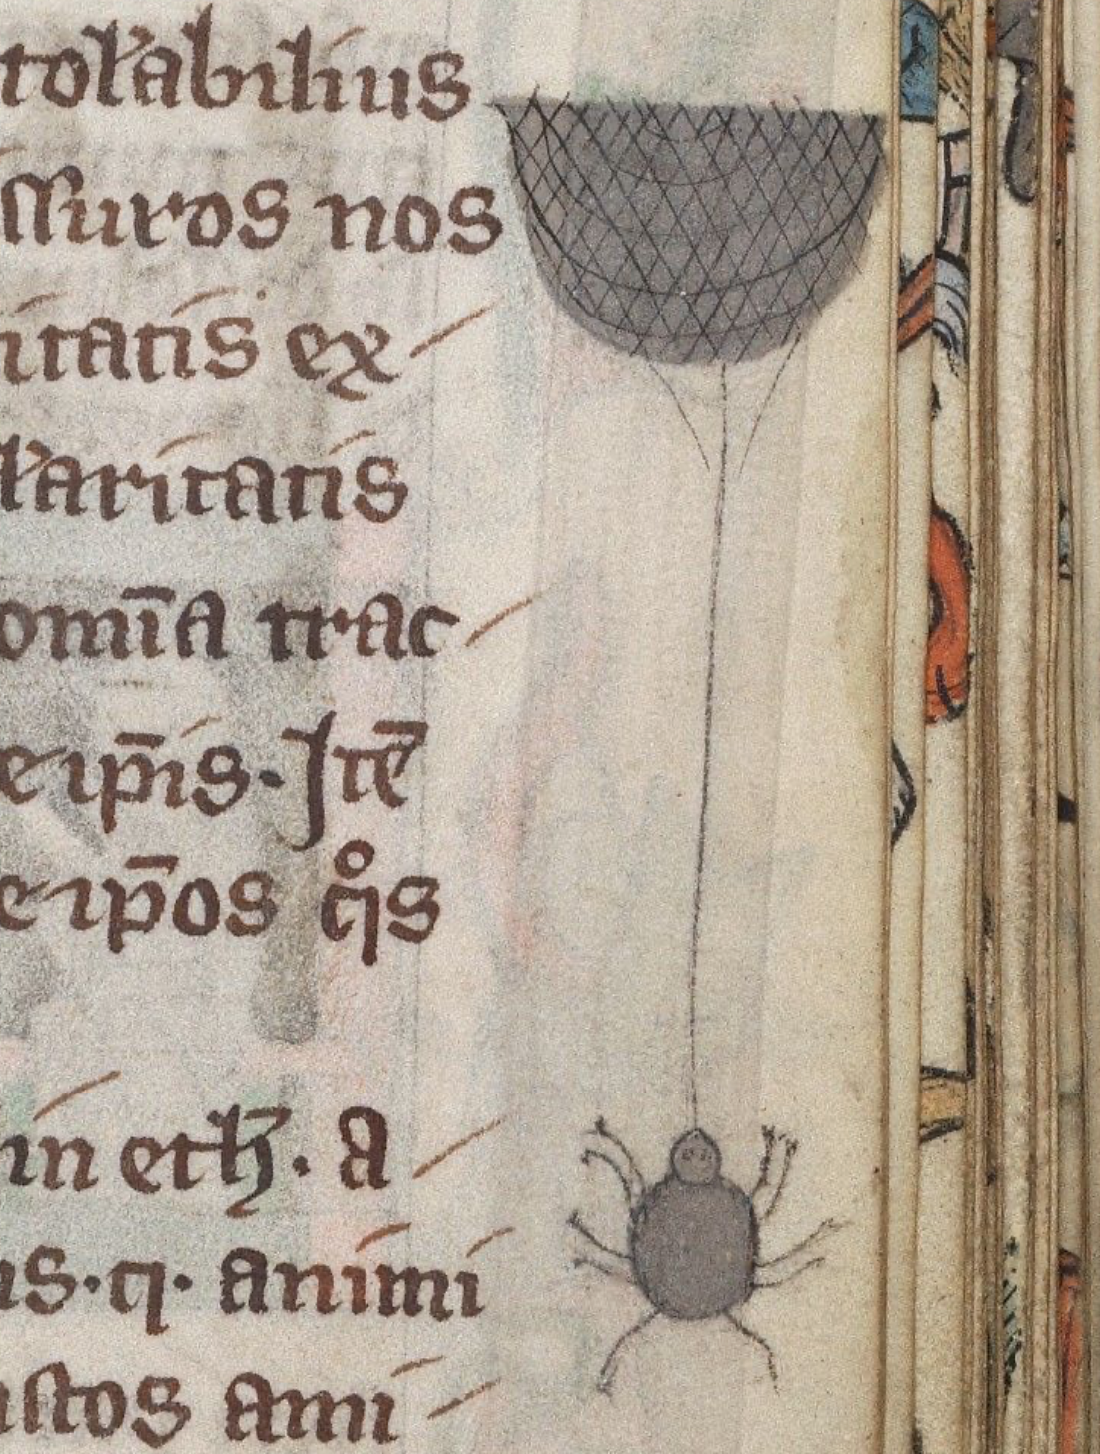 tol̾abilius
ssuros nos
itatis ex
l̾aritatis
omīa trac
e ip̄is. Itē
e ip̄os qͦs
in eth̄. a
us. q. animi
istos ami